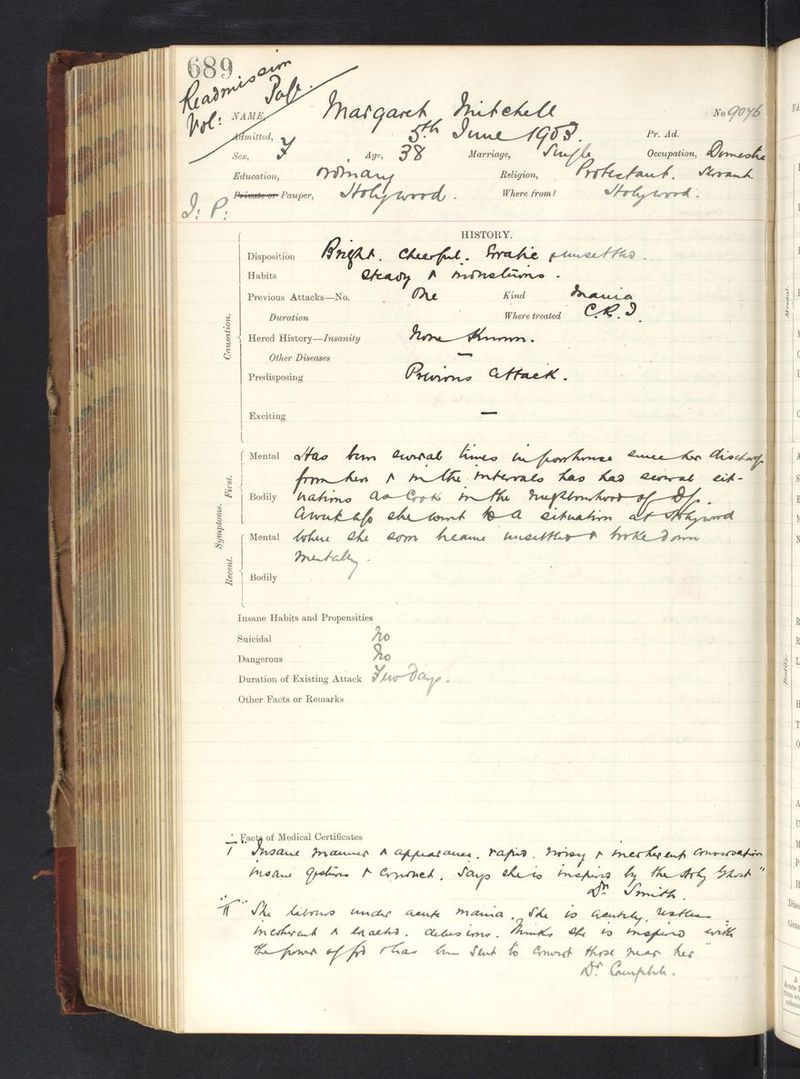 689
Readmission
Vol: Page.
NAME, Margaret Mitchell No 9076
Admitted, 5th June 1903. Pr. Ad.
Sex, F Age, 38 Marriage, Single Occupation, Domestic
Education, Ordinary Religion, Protestant. Servant.
Private or Pauper, Holywood. Where from? Holywood.
I: P:
HISTORY.
Disposition Bright. Cheerful. Erratic & unsettled.
Habits Steady & industrious.
Previous Attacks—No. One Kind Mania
Duration Where treated C.R.I.
Causation.
Hered History—Insanity None Known.
Other Diseases —
Predisposing Previous attack.
Exciting —
Symptoms.
First.
Mental Has been several times in poorhouse since her discharge
from here & in the intervals has had several sit-
Bodily uations as Cook in the neighbourhood of
A week ago she went to a situation at Holywood
Recent.
Mental where she soon became unsettled & broke down
mentally.
Bodily
Insane Habits and Propensities
Suicidal No
Dangerous No
Duration of Existing Attack Few Days.
Other Facts or Remarks
Facts of Medical Certificates
I "Insane manner & appearance. rapid. noisy & incoherent conversation
insane gestures & conduct. Says she is inspired by the Holy Ghost"
Dr Smith.
II "She labours under acute mania. She is acutely restless
incoherent & exalted. delusions. Thinks she is inspired with
the power of God & has been sent to convert those near her"
Dr Campbell.